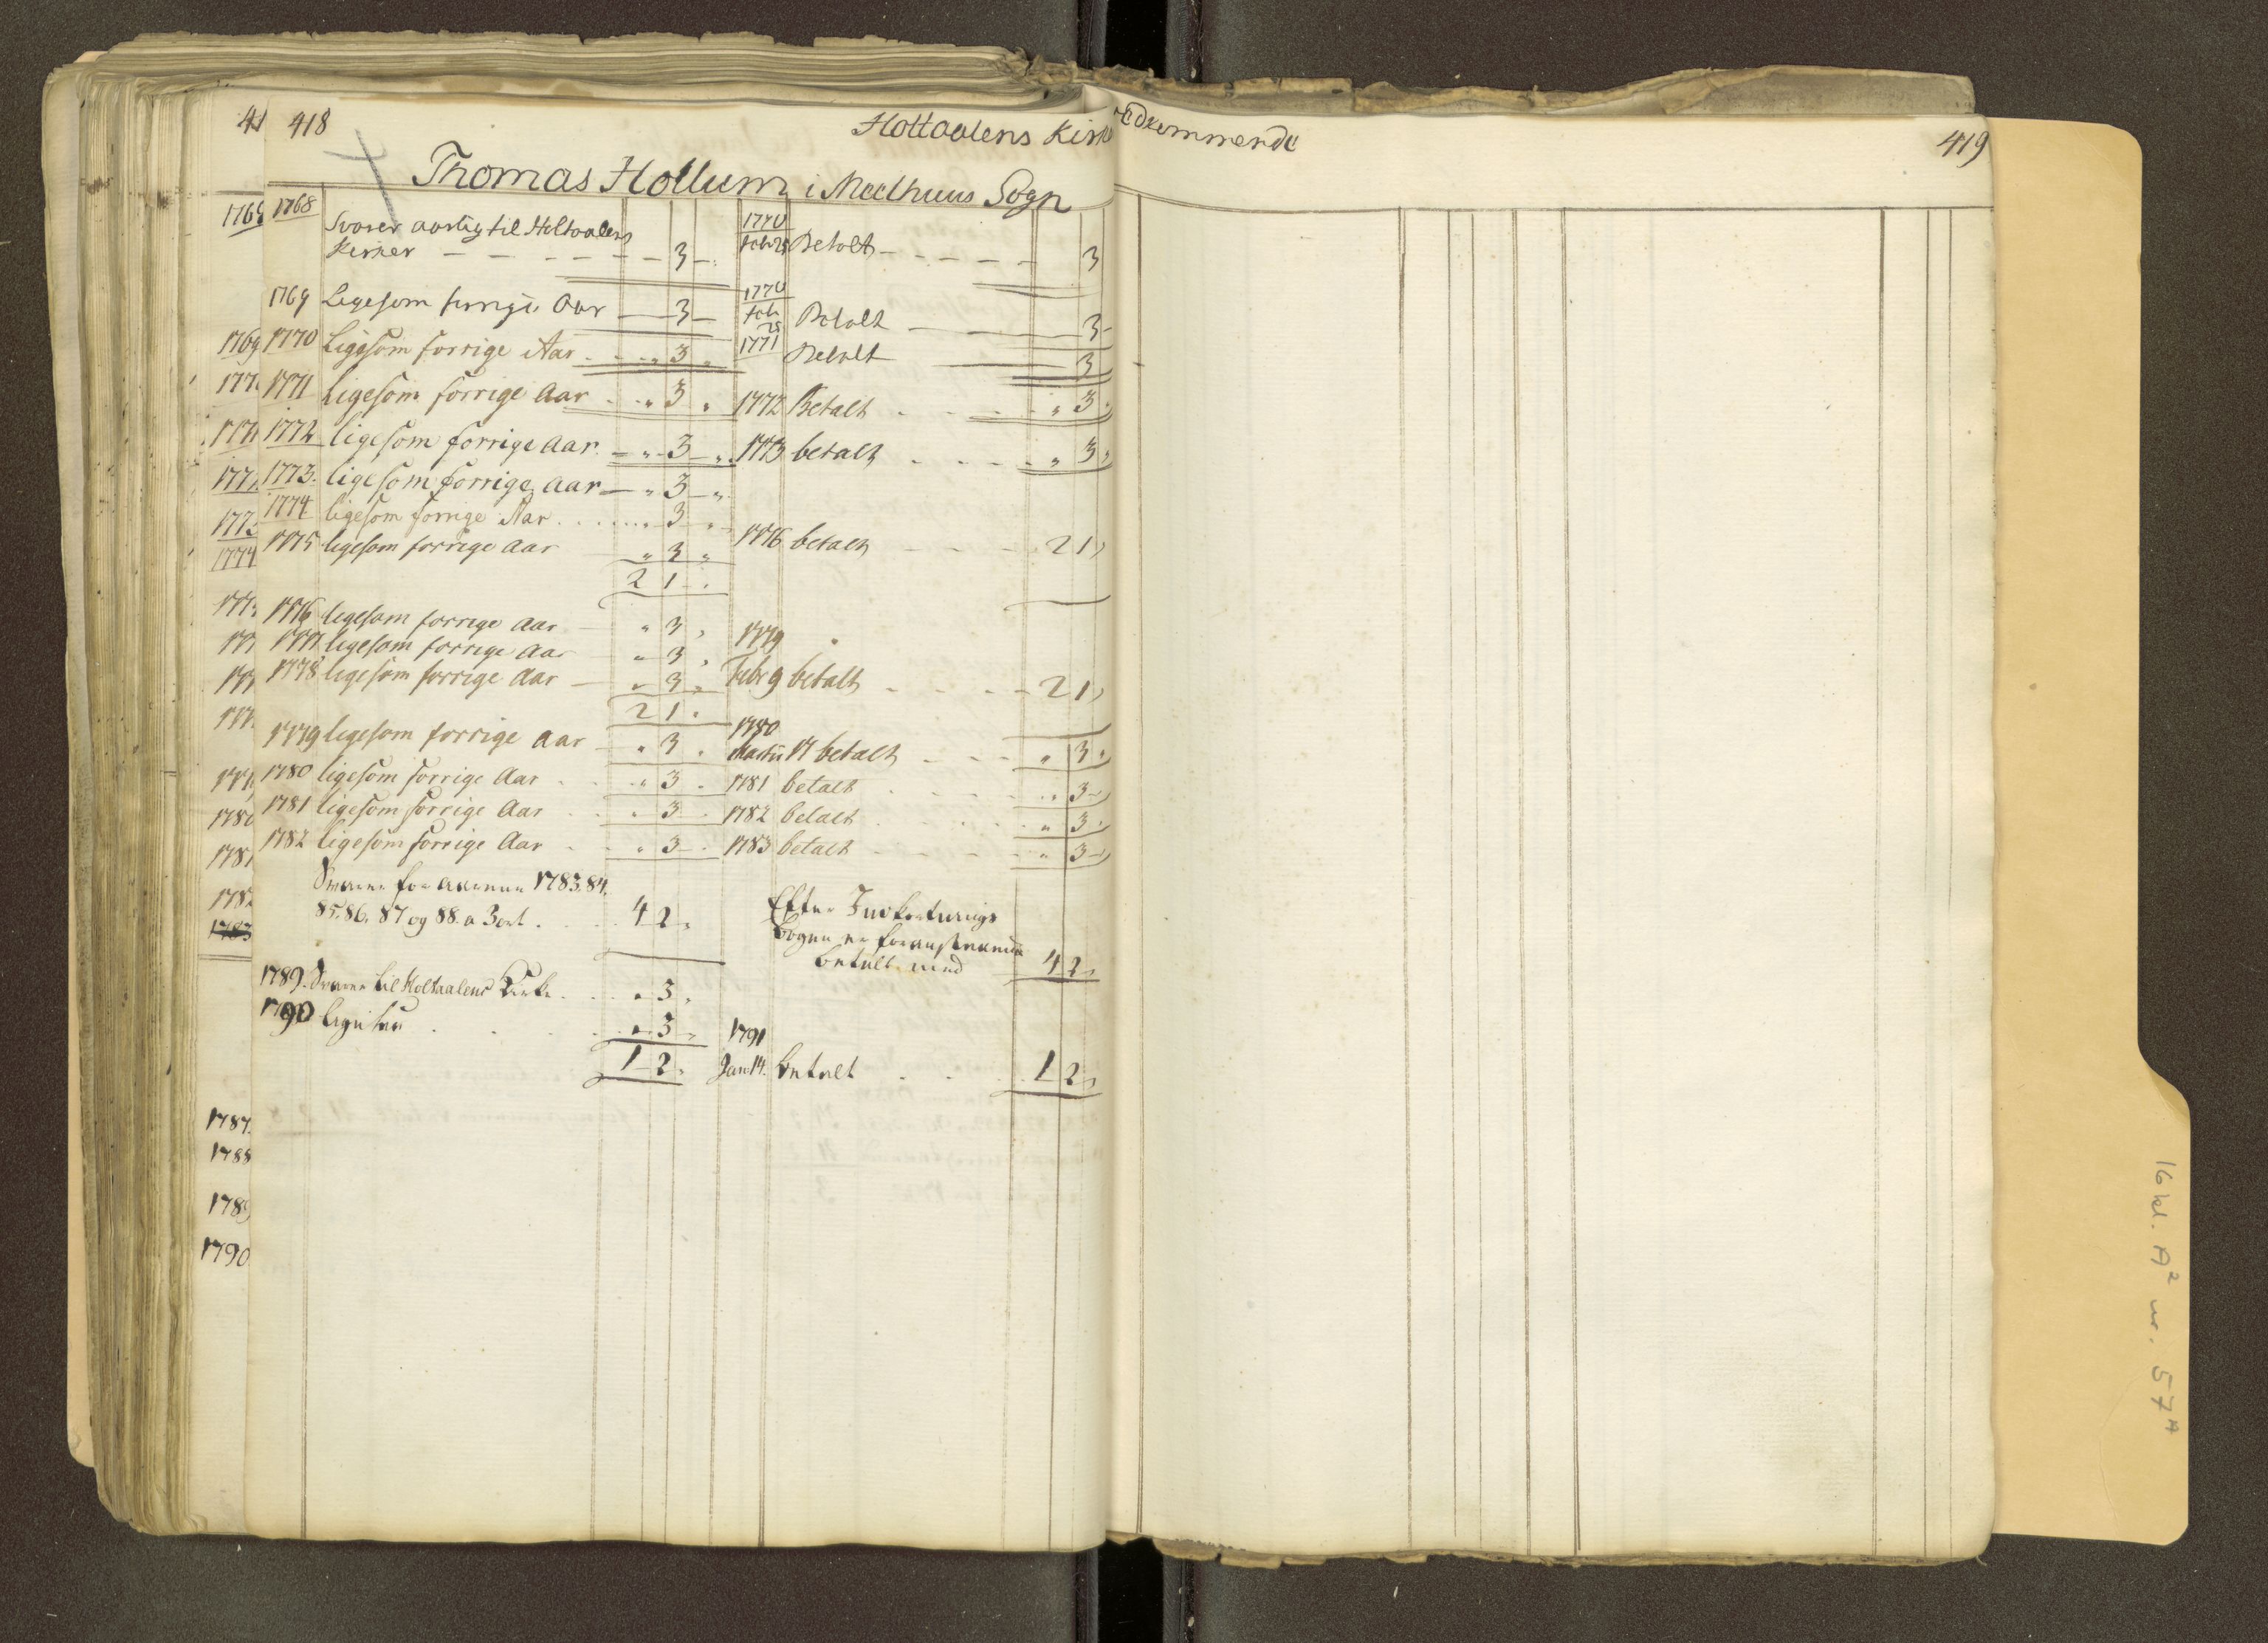 418
Holtaalens Kirke vedkommende
419
Thomas Hollum i Meelhuus Sogn
1768 Svarer aarlig til Holtaalens
Kirker - - - - - 3 -
1770
Feb 25 Betalt - - - - - 3
1769 Ligesom forrige Aar - 3 -
1770
Feb
25 Betalt 3 -
1770 Ligesom forrige Aar . . „ 3 „
1771 Betalt 3
1771 Ligesom forrige Aar . . „ 3 „ 1772 Betalt . . . „ 3 „
1772 ligesom forrige Aar. - „ 3 - „ 1773 betalt . . . . „ 3 „
1773. ligesom forrige Aar - „ 3 - „
1774 ligesom forrige Aar . . . . . „ 3 „
1775 ligesom forrige Aar „ 3 „ 1776 betalt - - - 2 1 „
2 1 - „
1776 ligesom forrige Aar - „ 3 „
1777 ligesom forrige Aar „ 3 „ 1779
1778 ligesom forrige Aar - „ 3 „ Febr 9 betalt . . . - 2 1 „
2 1 „
1779 ligesom forrige Aar - „ 3 „
1780
Martii 14 betalt . . . „ 3 „
1780 ligesom forrige Aar . . „ 3 „ 1781 betalt . . . . „ 3 „
1781 ligesom forrige Aar . . „ 3 „ 1782 betalt . . . . „ 3 „
1782 ligesom forrige Aar . . „ 3 „ 1783 betalt . . . . „ 3 „
Svarer for Aarene 1783. 84.
85. 86. 87 og 88. a 3 ort . . . 4 2 „
Efter
Bogen er foranstaaende
betalt med 4 2 „
1789. Svarer til Holtaalens Kirke . . „ 3 „
1790 ligesaa . . . . „ 3 „
1 2 „
1791
Jan: 14. betalt . . . 1 2 „
41
1769
1770
1774
1781
1782
1783
1787.
1788
1789
1790
16 kl. A² nr. 57 A